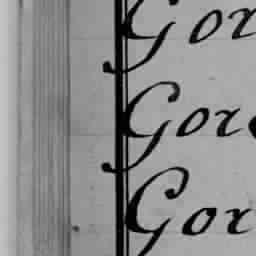 Gor
Gor
Gor